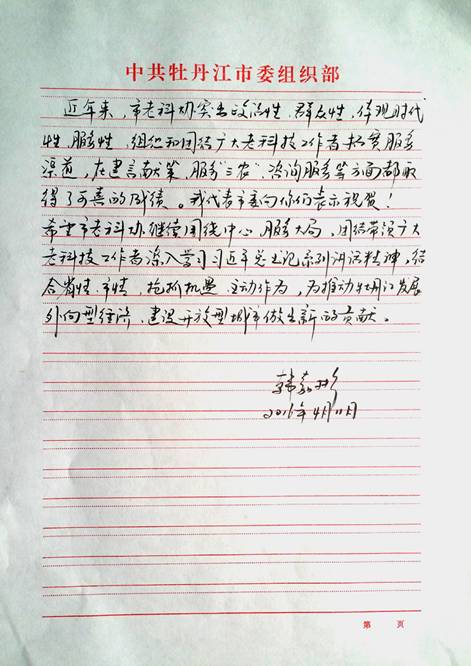 中共牡丹江市委组织部
近年来,市老科协突出政治性、群众性,体现时代
性、服务性,组织和团结广大老科技工作者拓宽服务
渠道,在建言献策、服务三农、咨询服务等方面都取
得了可喜的成绩。我代表市委向你们表示祝贺!
希望市老科协继续围绕中心、服务大局,团结带领广大
老科技工作者深入学习习近平总书记系列讲话精神,结
合省情、市情,抢抓机遇、主动作为,为推动牡丹江发展
外向型经济、建设开放型城市做出新的贡献。
韩嘉彬
2016年4月11日
第 页